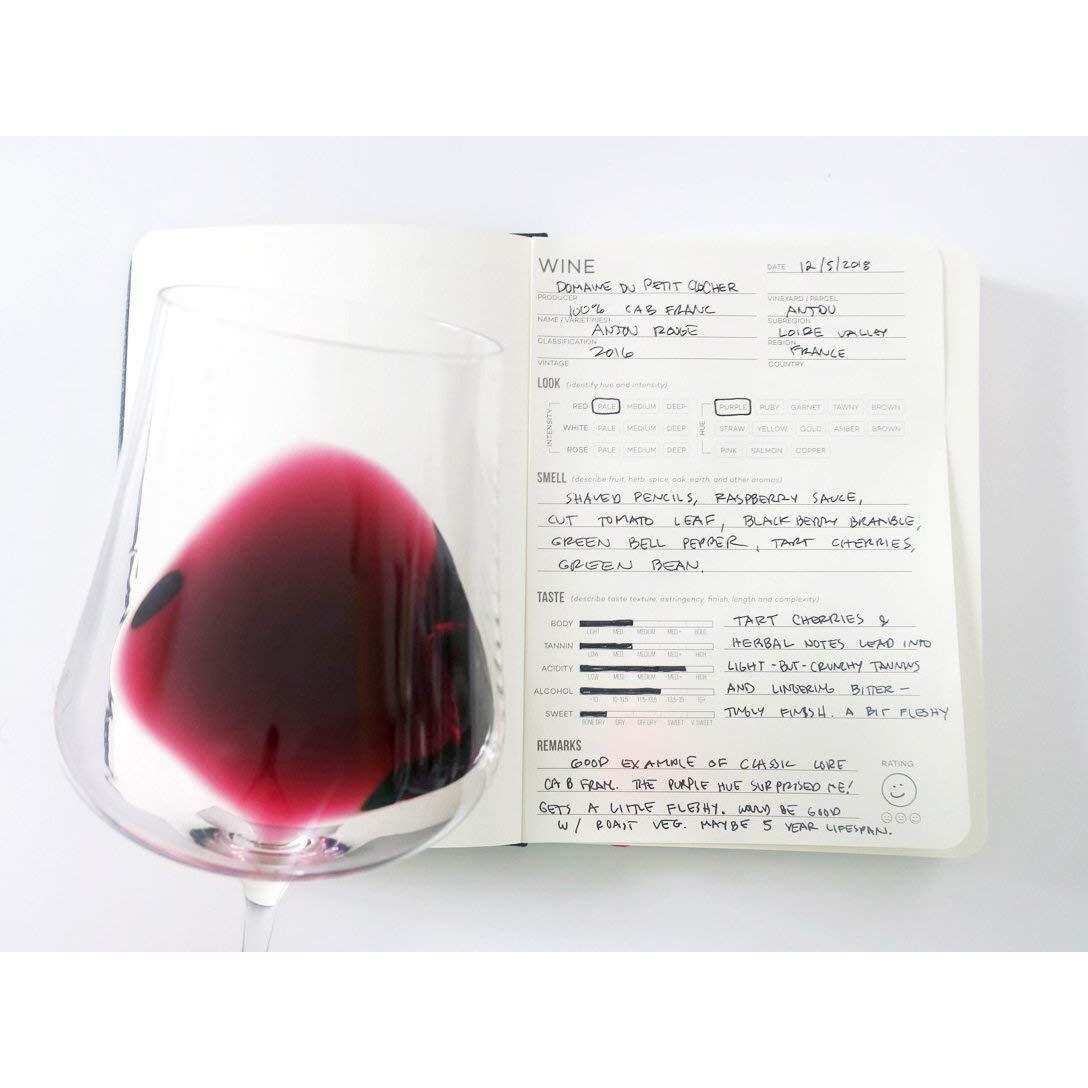 WINE
DATE 12/5/2018
DOMAINE DU PETIT CLOCHER
PRODUCER
VINEYARD / PARCEL
100% CAB FRANC
ANJOU
NAME / VARIETY(IES)
SUBREGION
ANJOU ROUGE
LOIRE VALLEY
CLASSIFICATION
REGION
2016
FRANCE
VINTAGE
COUNTRY
LOOK (identify hue and intensity)
INTENSITY
HUE
RED PALE MEDIUM DEEP PURPLE RUBY GARNET TAWNY BROWN
WHITE PALE MEDIUM DEEP STRAW YELLOW GOLD AMBER BROWN
ROSÉ PALE MEDIUM DEEP PINK SALMON COPPER
SMELL (describe fruit, herb, spice, oak, earth, and other aromas)
SHAVED PENCILS, RASPBERRY SAUCE,
CUT TOMATO LEAF, BLACKBERRY BRAMBLE,
GREEN BELL PEPPER, TART CHERRIES,
GREEN BEAN.
TASTE (describe taste texture, astringency, finish, length and complexity)
BODY
LIGHT MED- MEDIUM MED+ BOLD
TANNIN
LOW MED- MEDIUM MED+ HIGH
ACIDITY
LOW MED- MEDIUM MED+ HIGH
ALCOHOL
<10 10-11.5 11.5-13.5 13.5-15 15+
SWEET
BONE DRY DRY OFF DRY SWEET V. SWEET
TART CHERRIES &
HERBAL NOTES LEAD INTO
LIGHT-BUT-CRUNCHY TANNINS
AND LINGERING BITTER-
TINGLY FINISH. A BIT FLESHY
REMARKS
GOOD EXAMPLE OF CLASSIC LOIRE
CAB FRANC. THE PURPLE HUE SURPRISED ME!
GETS A LITTLE FLESHY. WOULD BE GOOD
W/ ROAST VEG. MAYBE 5 YEAR LIFESPAN.
RATING